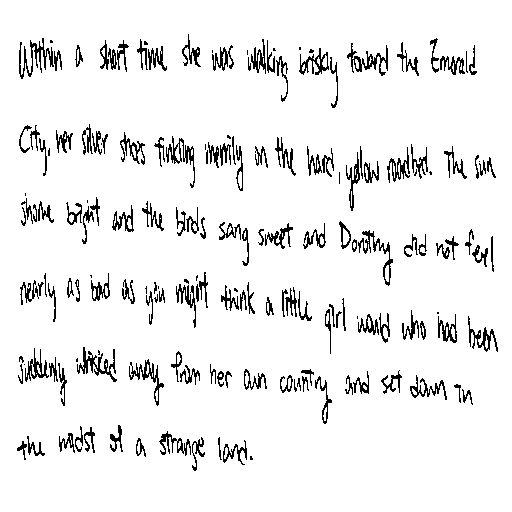 Within a short time she was walking briskly toward the Emerald
City, her silver shoes tinkling merrily on the hard, yellow roadbed. The sun
shone bright and the birds sang sweet and Dorothy did not feel
nearly as bad as you might think a little girl would who had been
suddenly whisked away from her own country and set down in
the midst of a strange land.